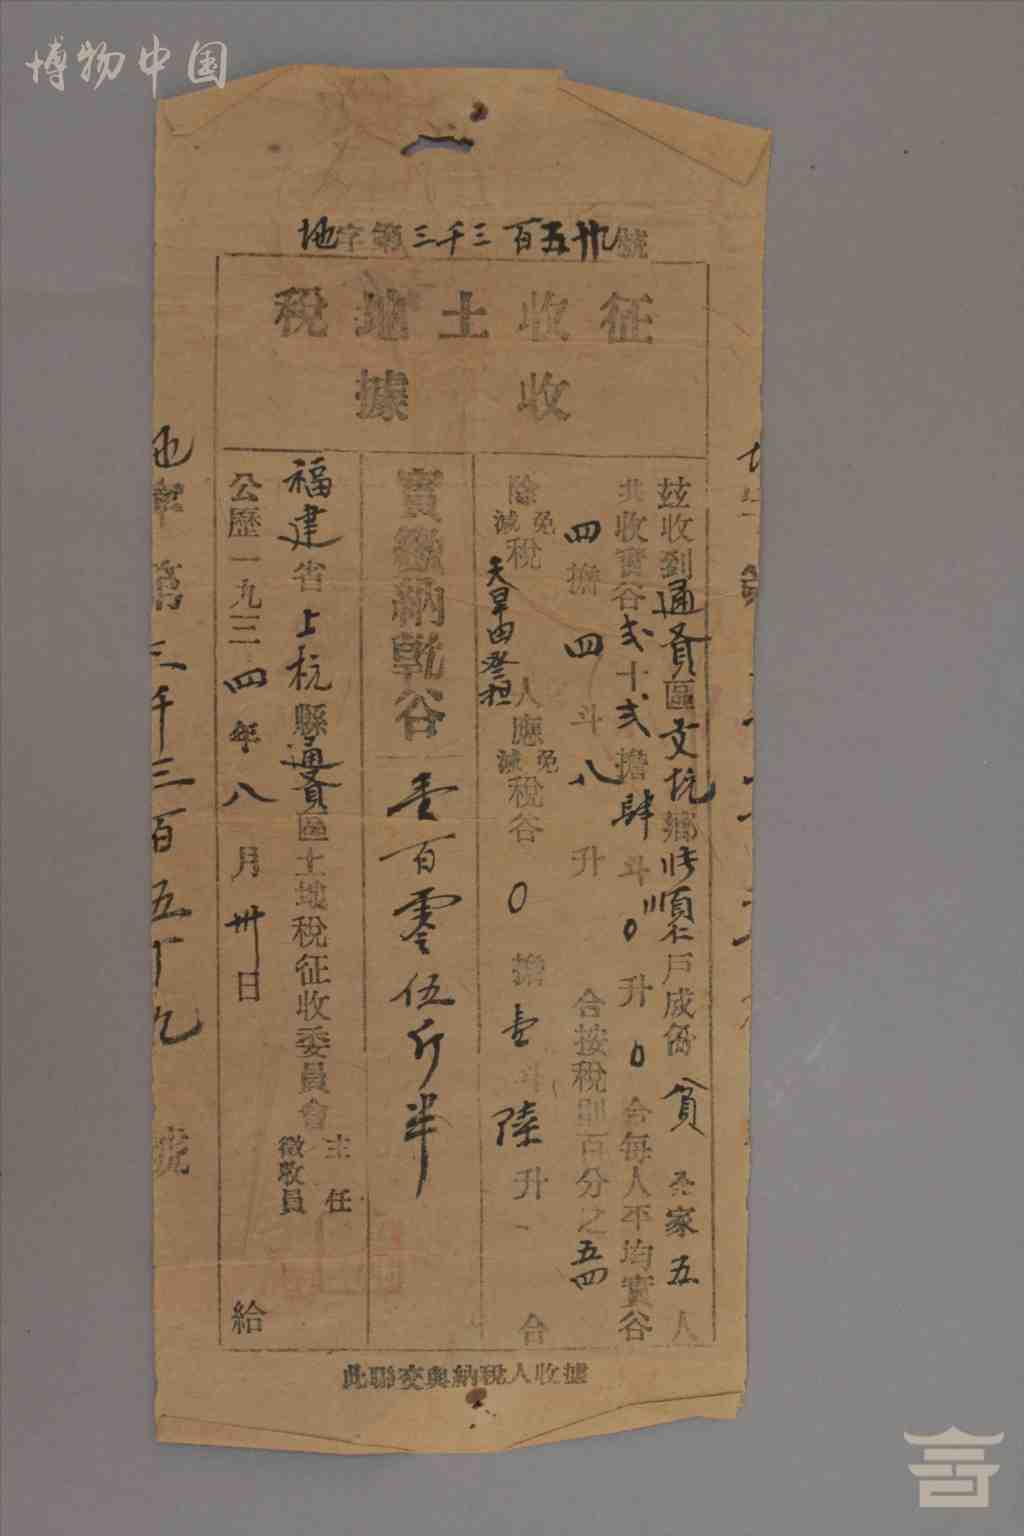 博物中国
地字第三千三百五十九號
征收土地稅
收據
茲收到通賢區文坑鄉順仁戶成份貧全家五人
共收實谷弍十弍擔肆斗0升0合每人平均實谷
四擔四斗八升 合按稅則百分之五四
除免減稅 人應免減稅谷0擔壹斗陸升 合
天旱由
實繳納乾谷壹百零伍斤半
福建省上杭縣通賢區土地稅征收委員會主任 徵收員
公歷一九三四年八月卅日 給
地字第三千三百五十九號
此聯交與納稅人收據